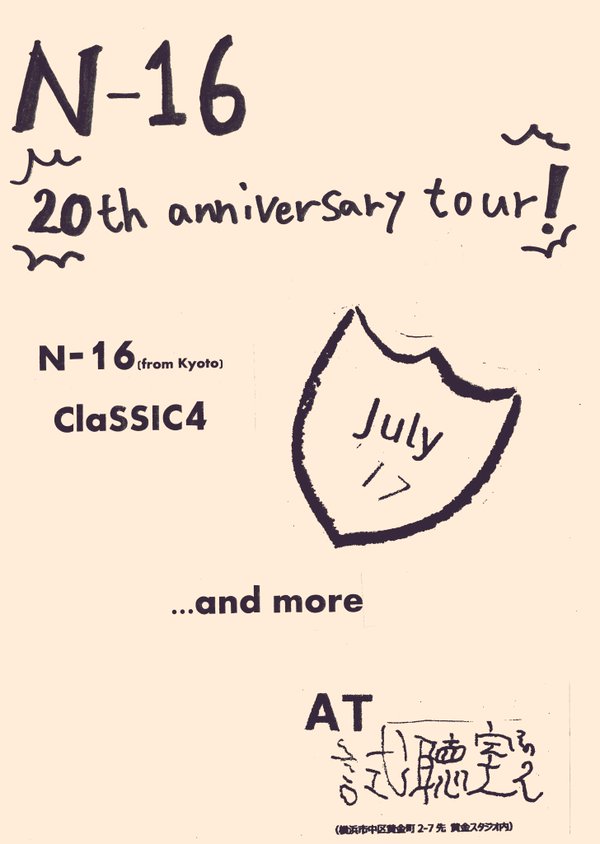 N-16
20th anniversary tour!
N-16(from Kyoto)
ClaSSIC4
July
17
...and more
AT
試聴室その2
(横浜市中区黄金町2-7先 黄金スタジオ内)